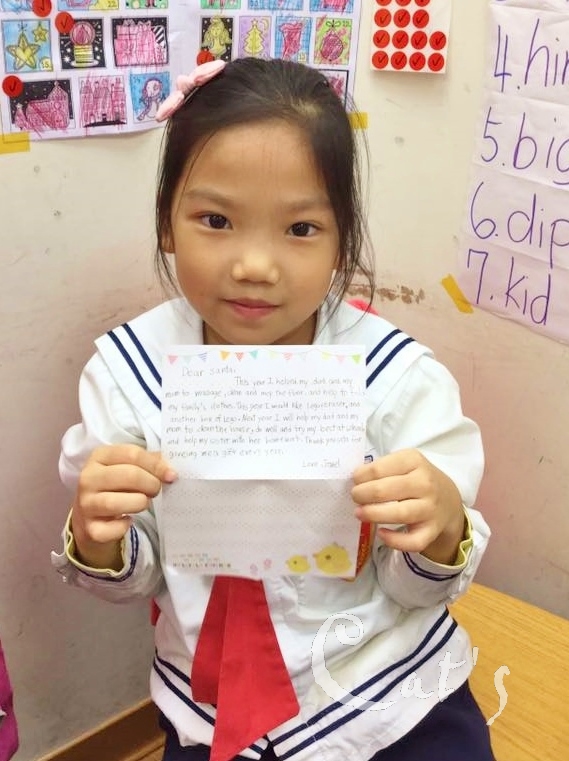 4. hi
5. big
6. dip
7. kid
Dear santa,
This year I helped my dad and my
mom to massage, clean and mop the floor, and help to
my family's clothes. This year I would like Lego
another box of Lego. Next year I will help my dad and my
mom to clean the house, do well and try my best at
and help my sister with her homework. Thank you
me a gift every year.
Love
Cat's